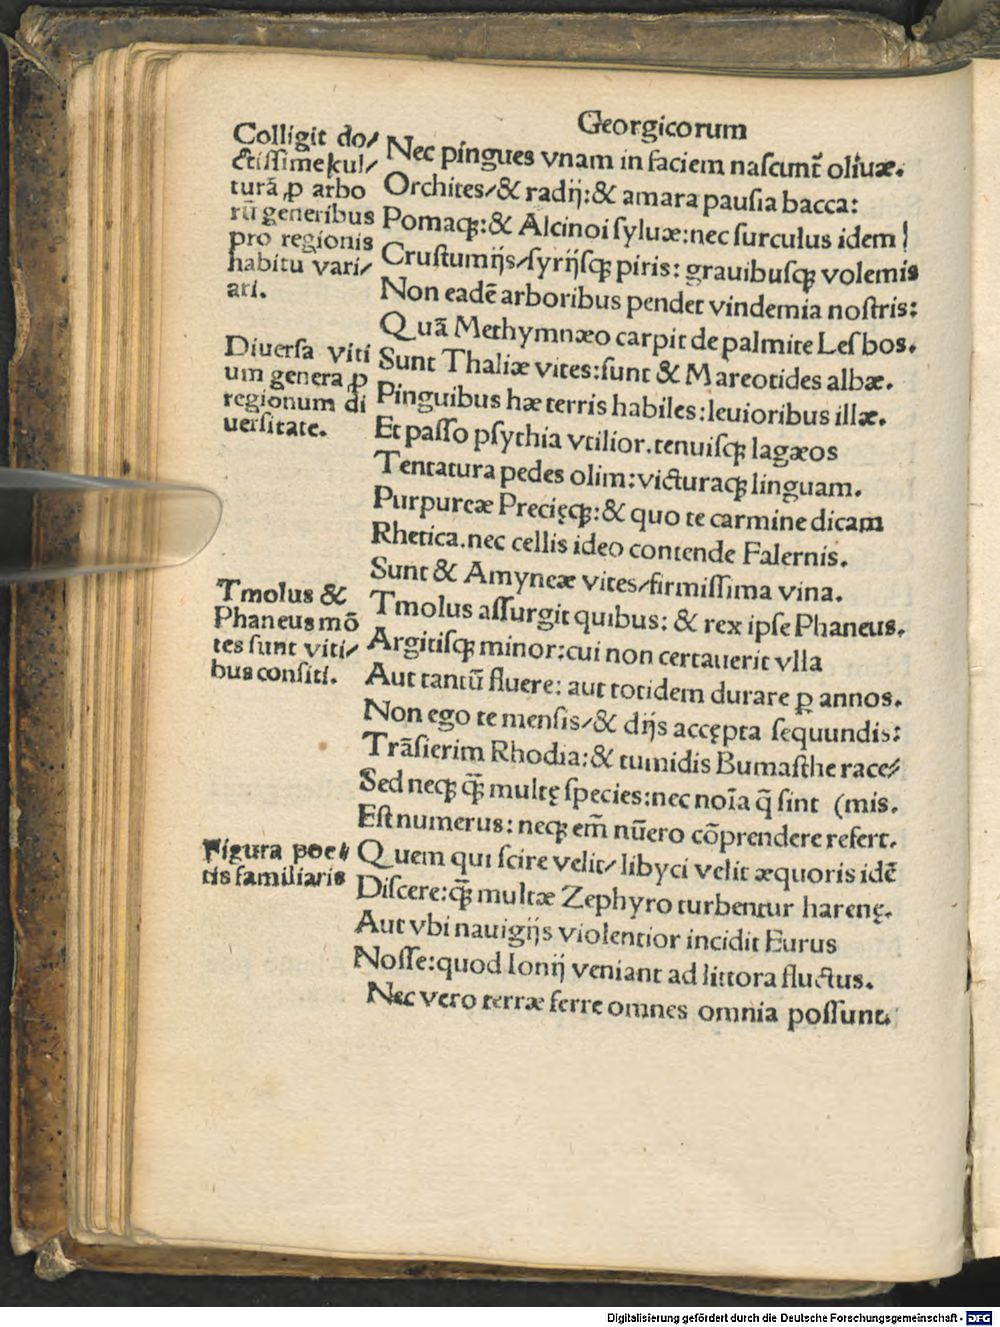 Georgicorum
Colligit do/
ctiſſime kul/
turā ꝑ arbo
rū generibus
pro regionis
habitu vari/
ari.
Nec pingues vnam in faciem naſcunt᷑ oliuæ.
Orchites/& radij:& amara pauſia bacca:
Pomaqꝫ:& Alcinoi ſyluæ:nec ſurculus idem
Cruſtumijs/ſyrijſqꝫ piris: grauibuſqꝫ volemis
Non eadē arboribus pendet vindemia noſtris:
Quā Methymnæo carpit de palmite Leſbos.
Diuerſa viti
um genera ꝑ
regionum di
uerſitate.
Sunt Thaliæ vites:ſunt & Mareotides albæ.
Pinguibus hæ terris habiles:leuioribus illæ.
Et paſſo pſythia vtilior.tenuiſqꝫ lagæos
Tentatura pedes olim:victuraqꝫ linguam.
Purpureæ Precięqꝫ:& quo te carmine dicam
Rhetica.nec cellis ideo contende Falernis.
Sunt & Amyneæ vites/firmiſſima vina.
Tmolus &
Phaneus mō
tes ſunt viti/
bus conſiti.
Tmolus aſſurgit quibus: & rex ipſe Phaneus.
Argitiſqꝫ minor:cui non certauerit vlla
Aut tantū fluere: aut totidem durare ꝑ annos.
Non ego te menſis/& dijs accępta ſequundis:
Trāſierim Rhodia:& tumidis Bumaſthe race/
Sed neqꝫ q̄ꝫ multę ſpecies:nec noīa q̄ ſint (mis.
Eſt numerus: neqꝫ em̄ nūero cōprendere refert.
Figura poe/
tis familiaris
Quem qui ſcire velit/ libyci velit æquoris idē
Diſcere:q̄ꝫ multæ Zephyro turbentur harenę.
Aut vbi nauigijs violentior incidit Eurus
Noſſe:quod Ionij veniant ad littora fluctus.
Nec vero terræ ferre omnes omnia poſſunt.
Digitalisierung gefördert durch die Deutsche Forschungsgemeinschaft - DFG